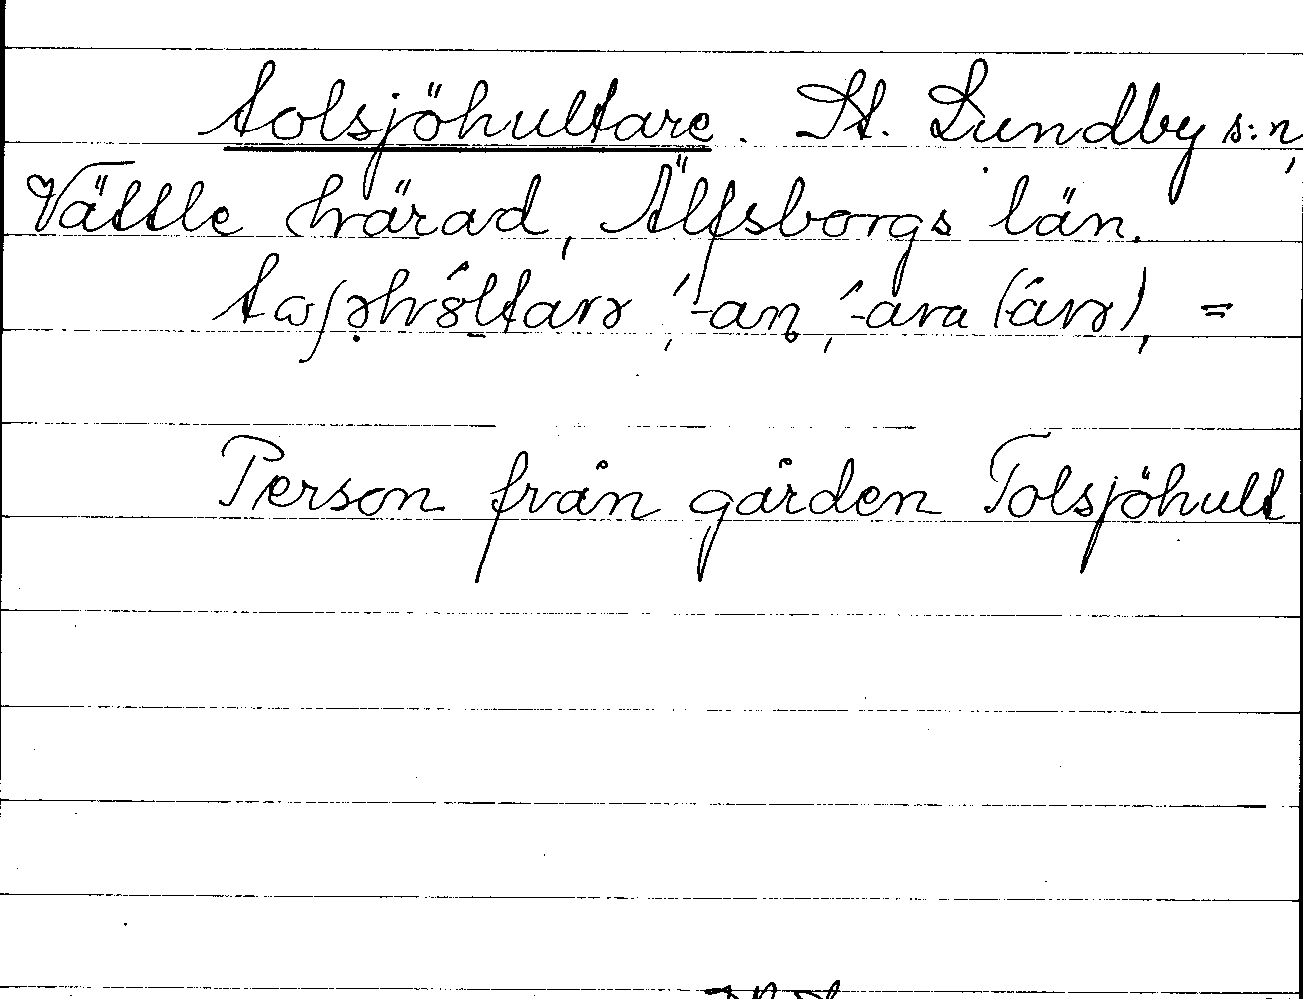 tolsjöhultare. St. Lundby s:n,
Vättle härad, Älfsborgs län.
tɷʃəhۡltarə, ́-an, ́-ara (-árə), =
Person från gården Tolsjöhult